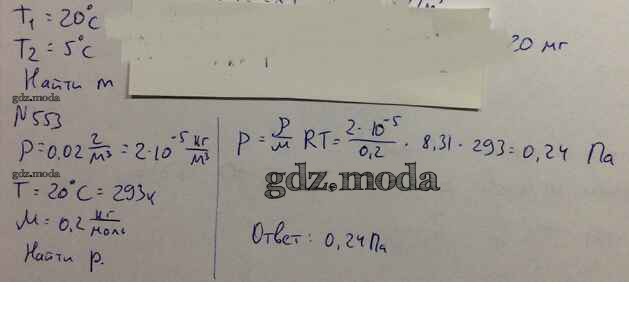 T₁ = 20°C
T₂ = 5°C
20 мг
Найти m
gdz.moda
N 553
ρ = 0,02 г/м³ = 2·10⁻⁵ кг/м³
gdz.moda
T = 20°C = 293к
M = 0,2 кг/моль
Найти p.
P = ρ/M RT = 2·10⁻⁵/0,2 · 8,31 · 293 = 0,24 Па
gdz.moda
Ответ: 0,24 Па